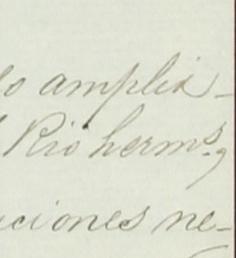 lo amplia-
l Rio herm.s,
ciones ne-